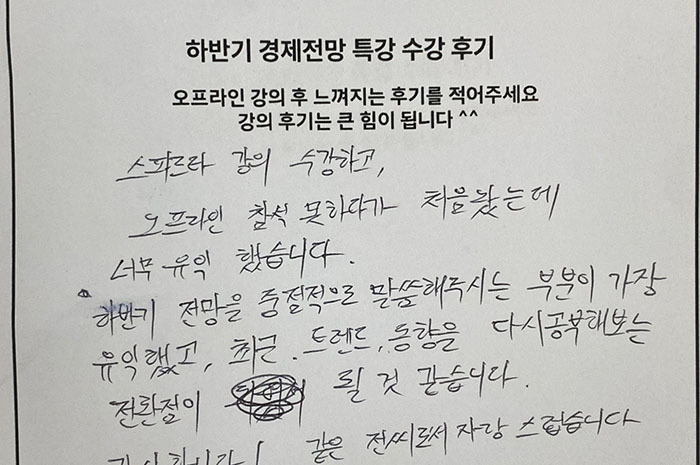 하반기 경제전망 특강 수강 후기
오프라인 강의 후 느껴지는 후기를 적어주세요
강의 후기는 큰 힘이 됩니다 ^^
스파르타 강의 수강하고,
오프라인 참석 못하다가 처음왔는데
너무 유익 했습니다.
하반기 전망을 중점적으로 말씀해주시는 부분이 가장
유익했고, 최근. 트렌드, 동향을 다시공부해보는
전환점이 될 것 같습니다.
같은 전씨로서 자랑 스럽습니다